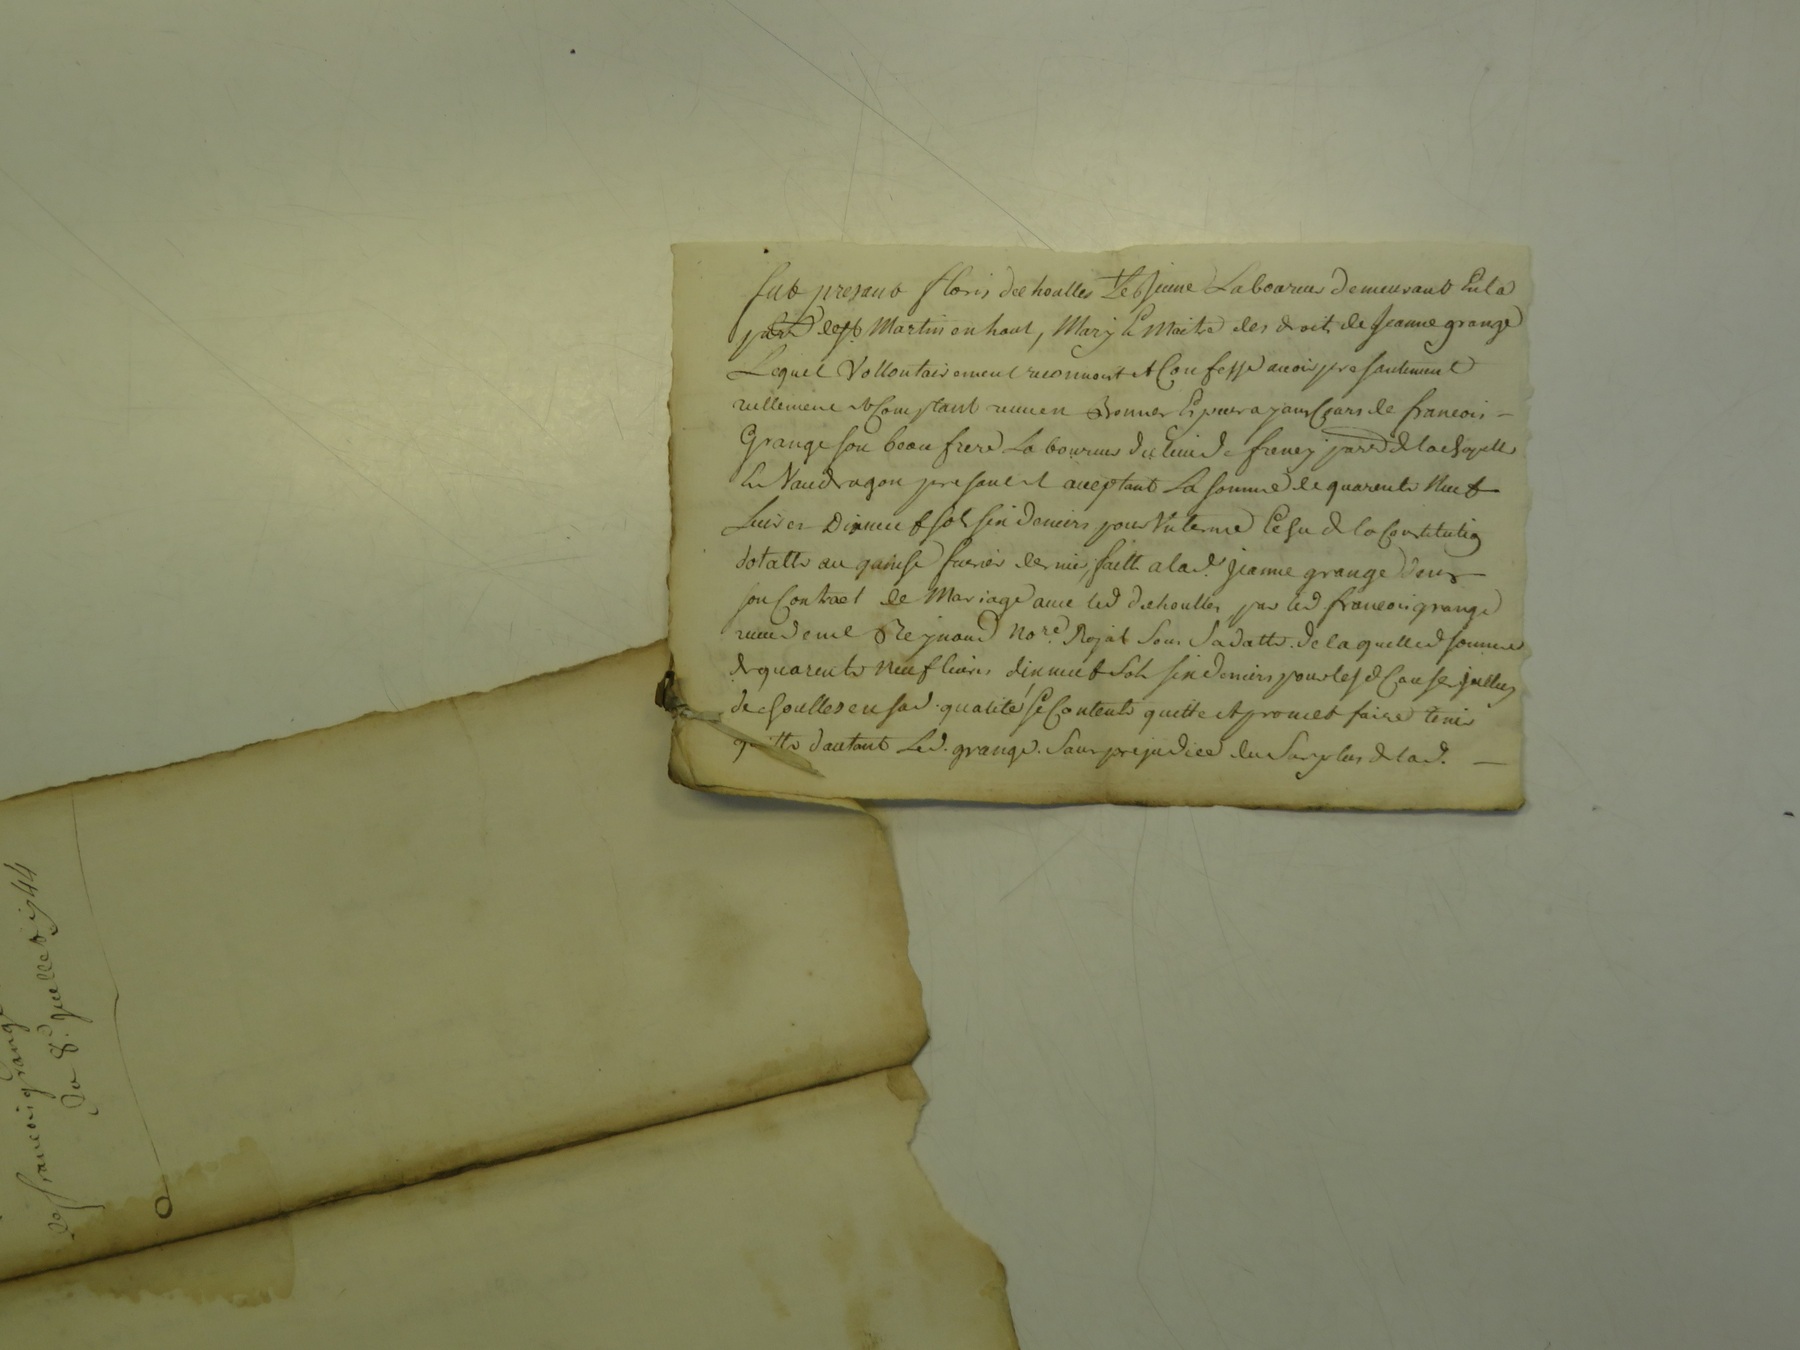 fut presant floris dechoulles Le Jeune Laboureur demeurant En la
parr. de St. Martin en haut, Mary & Maitre des droits de Jeanne grange
Lequel Vollontairement reconnoit et Confesse avoir presantement
reellement et Comptant receu en Bonnes Especes ayant Cours de francois
Grange son beau frere Laboureur du lieu de freney parr. de la chapelle
En Vaudragon presant et aceptant La somme de quarente Neuf
Livres Dixneuf sols six deniers pour Un terme Eschu de la Constitution
dotalle au quinse fuvrier dernier, faitte a lad. Jeanne grange dans
son Contract de Mariage avec led dechoulles par led. francois grange
receu de me Reynaud nore. Royal sous sa datte. de laquelle d somme
de quarente Neuf livres dixneuf sols six deniers pour les d Causes Icelluy
dechoulles en sad. qualité se Contente quitte et promet faire tenir
quitte d'autant Led. grange. Sans prejudice du Surplus de lad.
de francois grange
Du 8e. Juillet 1744